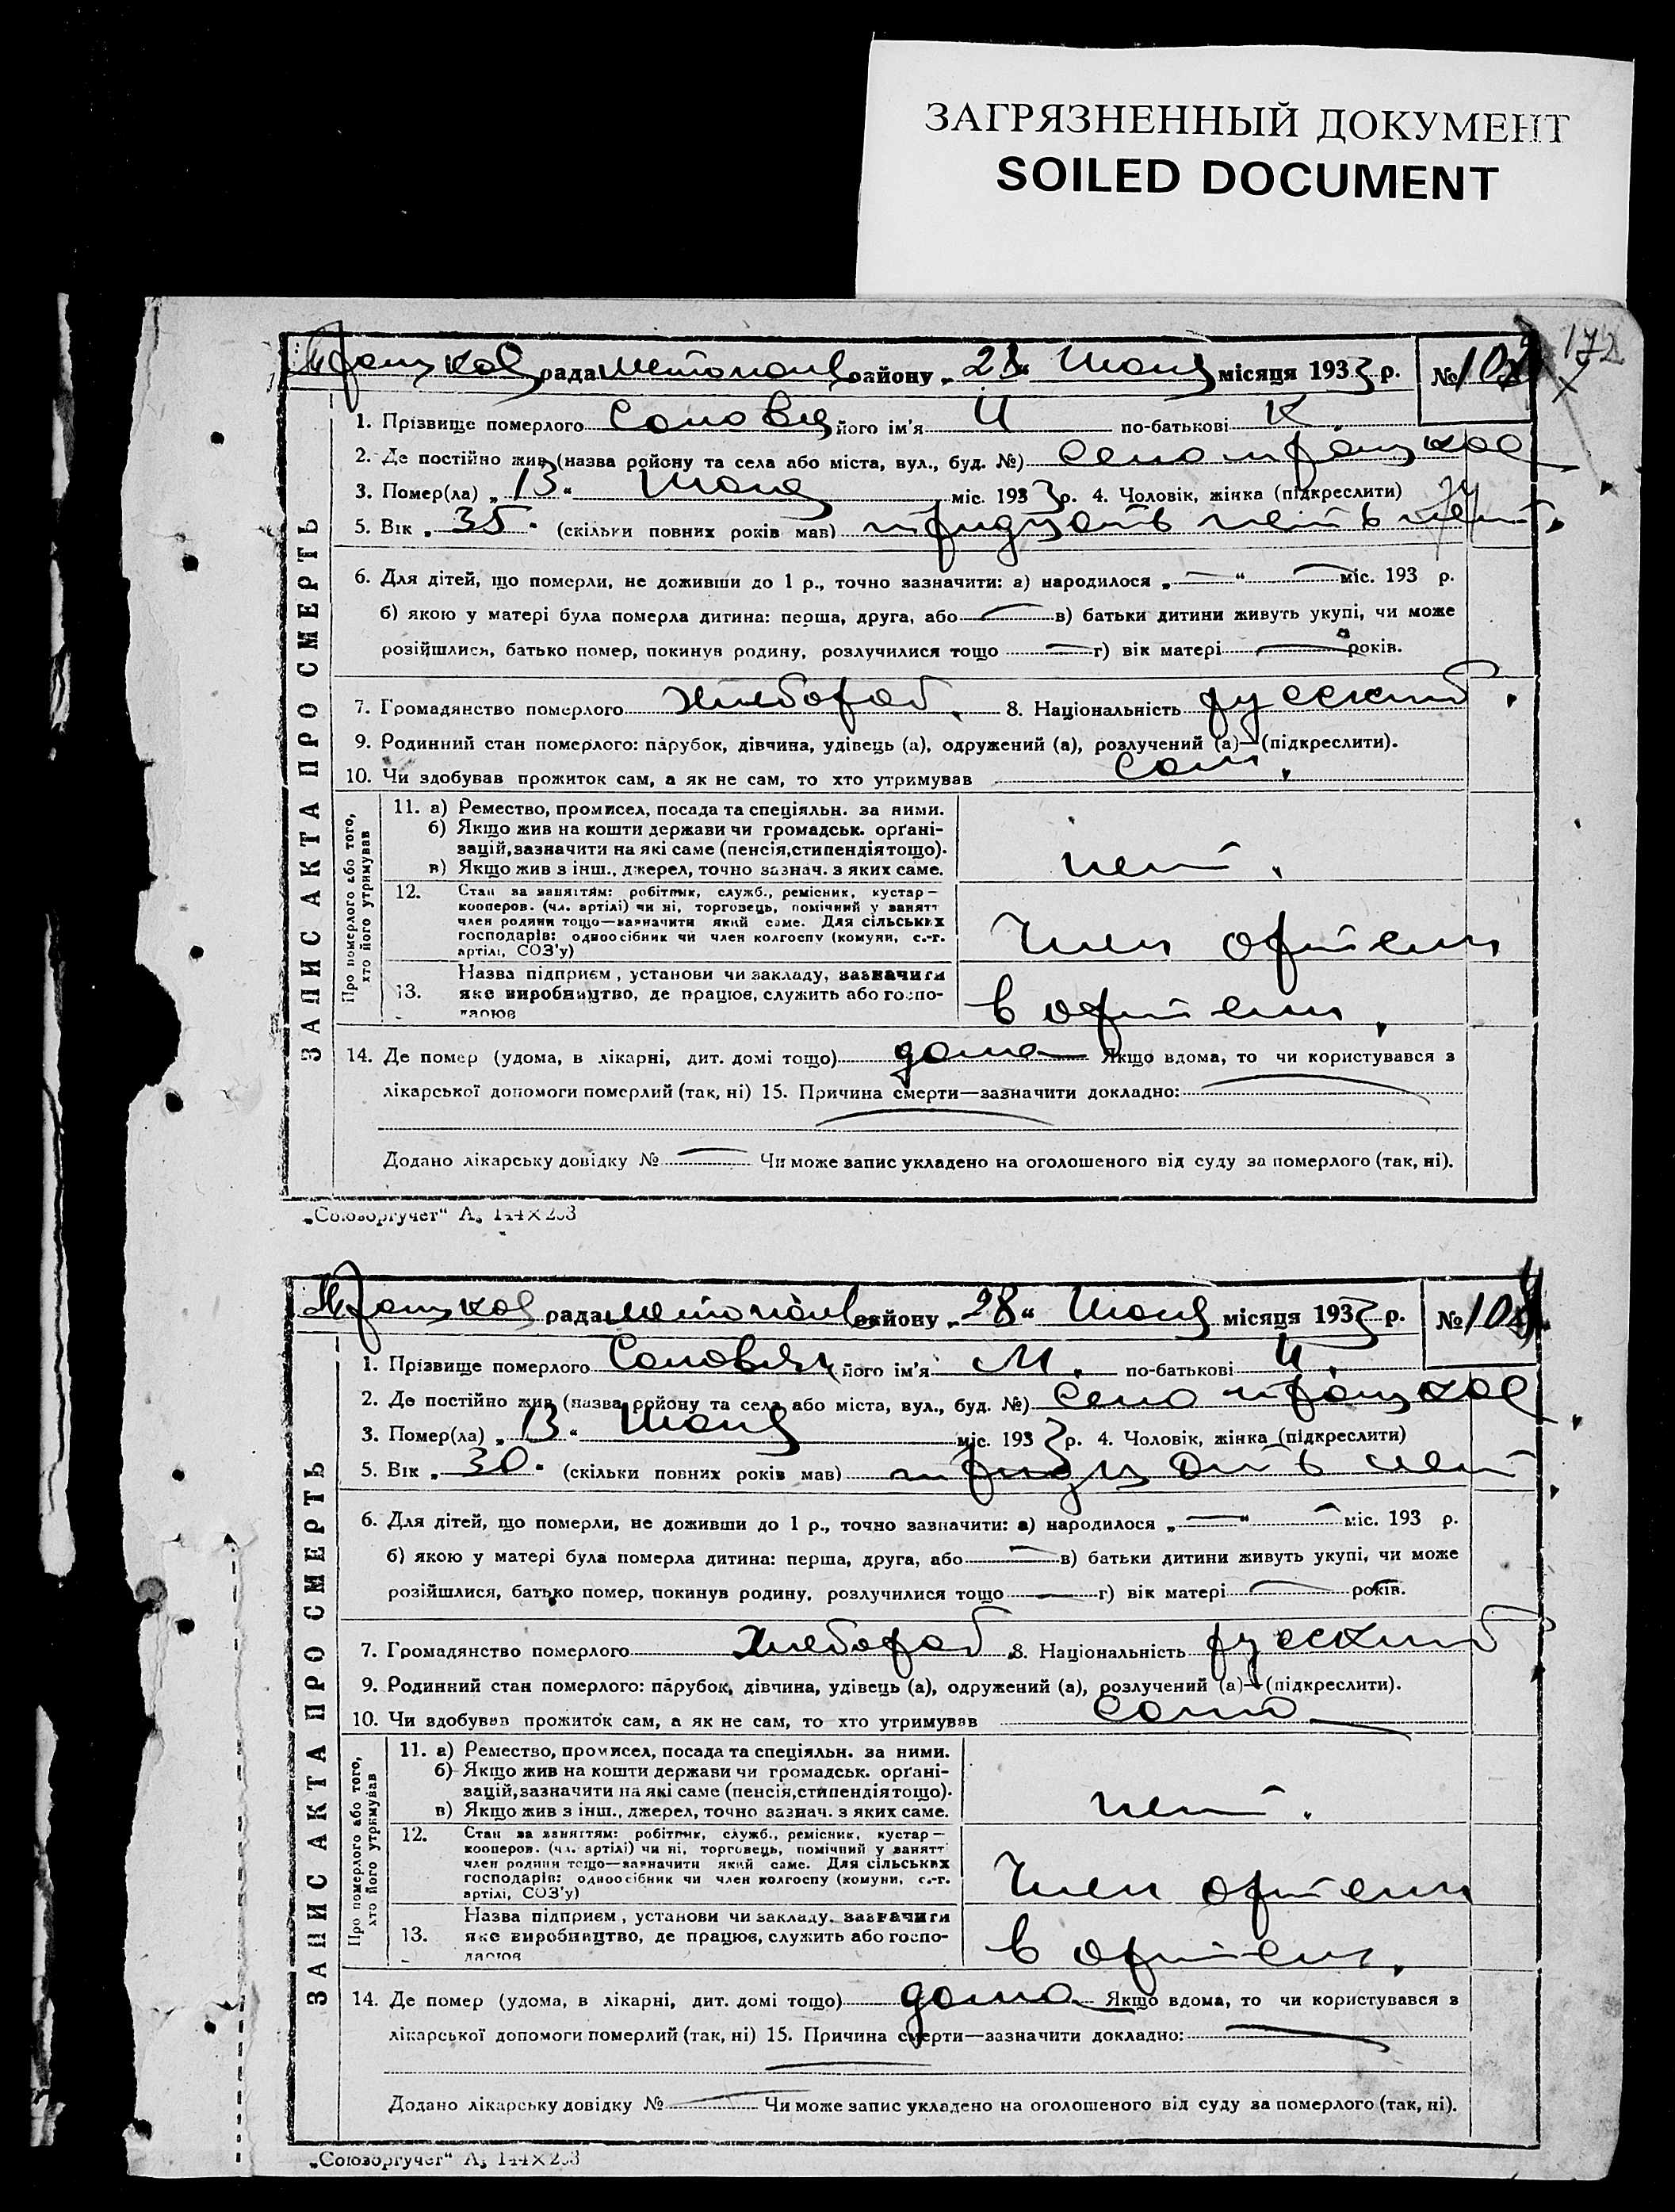 ЗАГРЯЗНЕННЫЙ ДОКУМЕНТ
SOILED DOCUMENT
172
рада району „28“ Июня місяця 1933 р. №
1. Прізвище померлого його ім'я И по-батькові К
2. Де постійно жив (назва ройону та села або міста, вул., буд. №) село
3. Помер(ла) „13“ Июня міс. 1933 р. 4. Чоловік, жінка (підкреслити)
5. Вік „35“ (скільки повних років мав) тридцать пять лет
6. Для дітей, що померли, не доживши до 1 р., точно зазначити: а) народилося „—“ — міс. 193 р.
б) якою у матері була померла дитина: перша, друга, або — в) батьки дитини живуть укупі, чи може
розійшлися, батько помер, покинув родину, розлучилися тощо — г) вік матері — років.
7. Громадянство померлого хлебороб. 8. Національність русский
9. Родинний стан померлого: парубок, дівчина, удівець (а), одружений (а), розлучений (а)—(підкреслити).
10. Чи здобував прожиток сам, а як не сам, то хто утримував сам.
ЗАПИС АКТА ПРО СМЕРТЬ
Про померлого або того, хто його утримував
11. а) Ремество, промисел, посада та спеціяльн. за ними.
б) Якщо жив на кошти держави чи громадськ. орґані-
зацій, зазначити на які саме (пенсія, стипендія тощо).
в) Якщо жив з інш., джерел, точно зазнач. з яких саме.
нет.
12. Стан за заняттям: робітник, служб., ремісник, кустар—
кооперов. (чл. артілі) чи ні, торговець, помічний у занятт
член родини тощо—зазначити який саме. Для сільських
господарів: одноосібник чи член колгоспу (комуни, с.-г.
артілі, СОЗ'у)
Член артели
13. Назва підприєм, установи чи закладу, зазначити
яке виробництво, де працює, служить або госпо-
дарює
в артели.
14. Де помер (удома, в лікарні, дит. домі тощо) дома Якщо вдома, то чи користувався з
лікарської допомоги померлий (так, ні) 15. Причина смерти—зазначити докладно: —
Додано лікарську довідку № — Чи може запис укладено на оголошеного від суду за померлого (так, ні).
„Союзоргучет“ А₅ 144×203
рада району „28“ Июня місяця 1933 р. №
1. Прізвище померлого його ім'я М. по-батькові И.
2. Де постійно жив (назва ройону та села або міста, вул., буд. №) село
3. Помер(ла) „13“ Июня міс. 1933 р. 4. Чоловік, жінка (підкреслити)
5. Вік „30“ (скільки повних років мав) тридцать лет
6. Для дітей, що померли, не доживши до 1 р., точно зазначити: а) народилося „—“ — міс. 193 р.
б) якою у матері була померла дитина: перша, друга, або — в) батьки дитини живуть укупі, чи може
розійшлися, батько помер, покинув родину, розлучилися тощо — г) вік матері — років.
7. Громадянство померлого хлебороб. 8. Національність русский
9. Родинний стан померлого: парубок, дівчина, удівець (а), одружений (а), розлучений (а)—(підкреслити).
10. Чи здобував прожиток сам, а як не сам, то хто утримував сама
ЗАПИС АКТА ПРО СМЕРТЬ
Про померлого або того, хто його утримував
11. а) Ремество, промисел, посада та спеціяльн. за ними.
б) Якщо жив на кошти держави чи громадськ. орґані-
зацій, зазначити на які саме (пенсія, стипендія тощо).
в) Якщо жив з інш., джерел, точно зазнач. з яких саме.
нет.
12. Стан за заняттям: робітник, служб., ремісник, кустар—
кооперов. (чл. артілі) чи ні, торговець, помічний у занятт
член родини тощо—зазначити який саме. Для сільських
господарів: одноосібник чи член колгоспу (комуни, с.-г.
артілі, СОЗ'у)
Член артели
13. Назва підприєм, установи чи закладу, зазначити
яке виробництво, де працює, служить або госпо-
дарює
в артели.
14. Де помер (удома, в лікарні, дит. домі тощо) дома Якщо вдома, то чи користувався з
лікарської допомоги померлий (так, ні) 15. Причина смерти—зазначити докладно: —
Додано лікарську довідку № — Чи може запис укладено на оголошеного від суду за померлого (так, ні).
„Союзоргучет“ А₅ 144×203